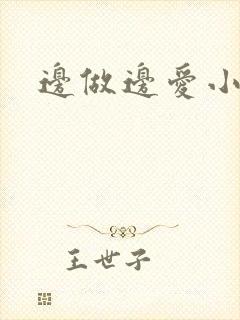 邊做邊愛小
王世子